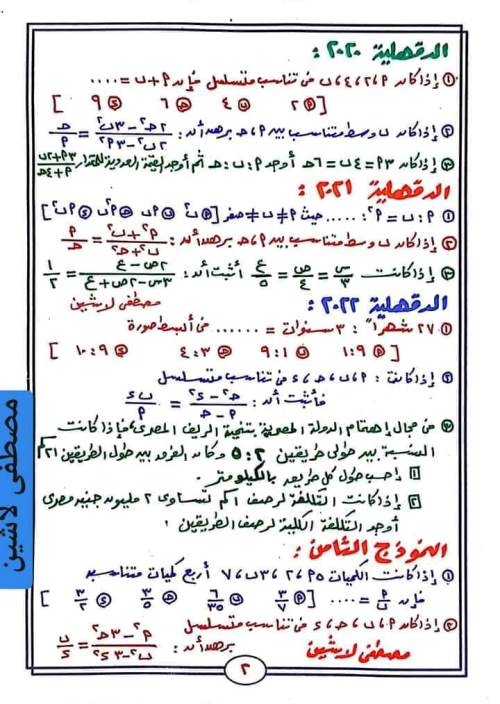 الدقهلية ٢٠٢٠ :
① إذا كانت ٢ ، ٤ ، ب فى تناسب متسلسل فإن ٢ + ب = ....
[ أ ٢ ب ٤ ج ٦ د ٩ ]
② إذا كان ب وسط متناسب بين أ ، ج برهن أن : (٢ج² - ٣ب²) / (٢ب² - ٣أ²) = ج / أ
③ إذا كان ٣أ = ٤ب = ٦ج أوجد أ : ب : ج ثم أوجد القيمة العددية للمقدار (٣أ + ٢ب) / (أ + ٤ج)
الدقهلية ٢٠٢١ :
① أ : ب = أ² : ..... حيث أ ≠ ب ≠ صفر [ أ ب² ب أب ج أ² د أب² ]
② إذا كان ب وسط متناسب بين أ ، ج برهن أن : (أ² + ب²) / (ب² + ج²) = أ / ج
③ إذا كانت س/٣ = ص/٤ = ع/٥ أثبت أن : (٢ص - ع) / (٣س - ٢ص + ع) = ١/٢
مصطفى لاشين
الدقهلية ٢٠٢٢ :
① ٢٧ شهراً : ٣ سنوات = ...... فى أبسط صورة
[ أ ١ : ٩ ب ٩ : ١ ج ٣ : ٤ د ٩ : ١٠ ]
② إذا كانت : أ ، ب ، ج ، د فى تناسب متسلسل
فأثبت أن : (ج² - د²) / (أ - ج) = ب د / أ
③ فى مجال إهتمام الدولة المصرية بتنمية الريف المصرى، فإذا كانت
النسبة بين طولى طريقين ٥ : ٢ وكان الفرق بين طول الطريقين ٢١ كم
١ إحسب طول كل طريق بالكيلومتر .
٢ إذا كانت التكلفة لرصف ١ كم تساوى ٢ مليون جنيه مصرى
أوجد التكلفة الكلية لرصف الطريقين .
النموذج الثامن :
① إذا كانت الكميات ٥أ ، ٢ ، ٣ب ، ٧ أربع كميات متناسبة
فإن أ/ب = .... [ أ ٣/٧ ب ٦/٣٥ ج ٣/٥ د ٣/٢ ]
② إذا كان أ ، ب ، ج ، د فى تناسب متسلسل
برهن أن : (أ² - ٣ج²) / (ب² - ٣د²) = ب / د
مصطفى لاشين
٢
مصطفى لاشين